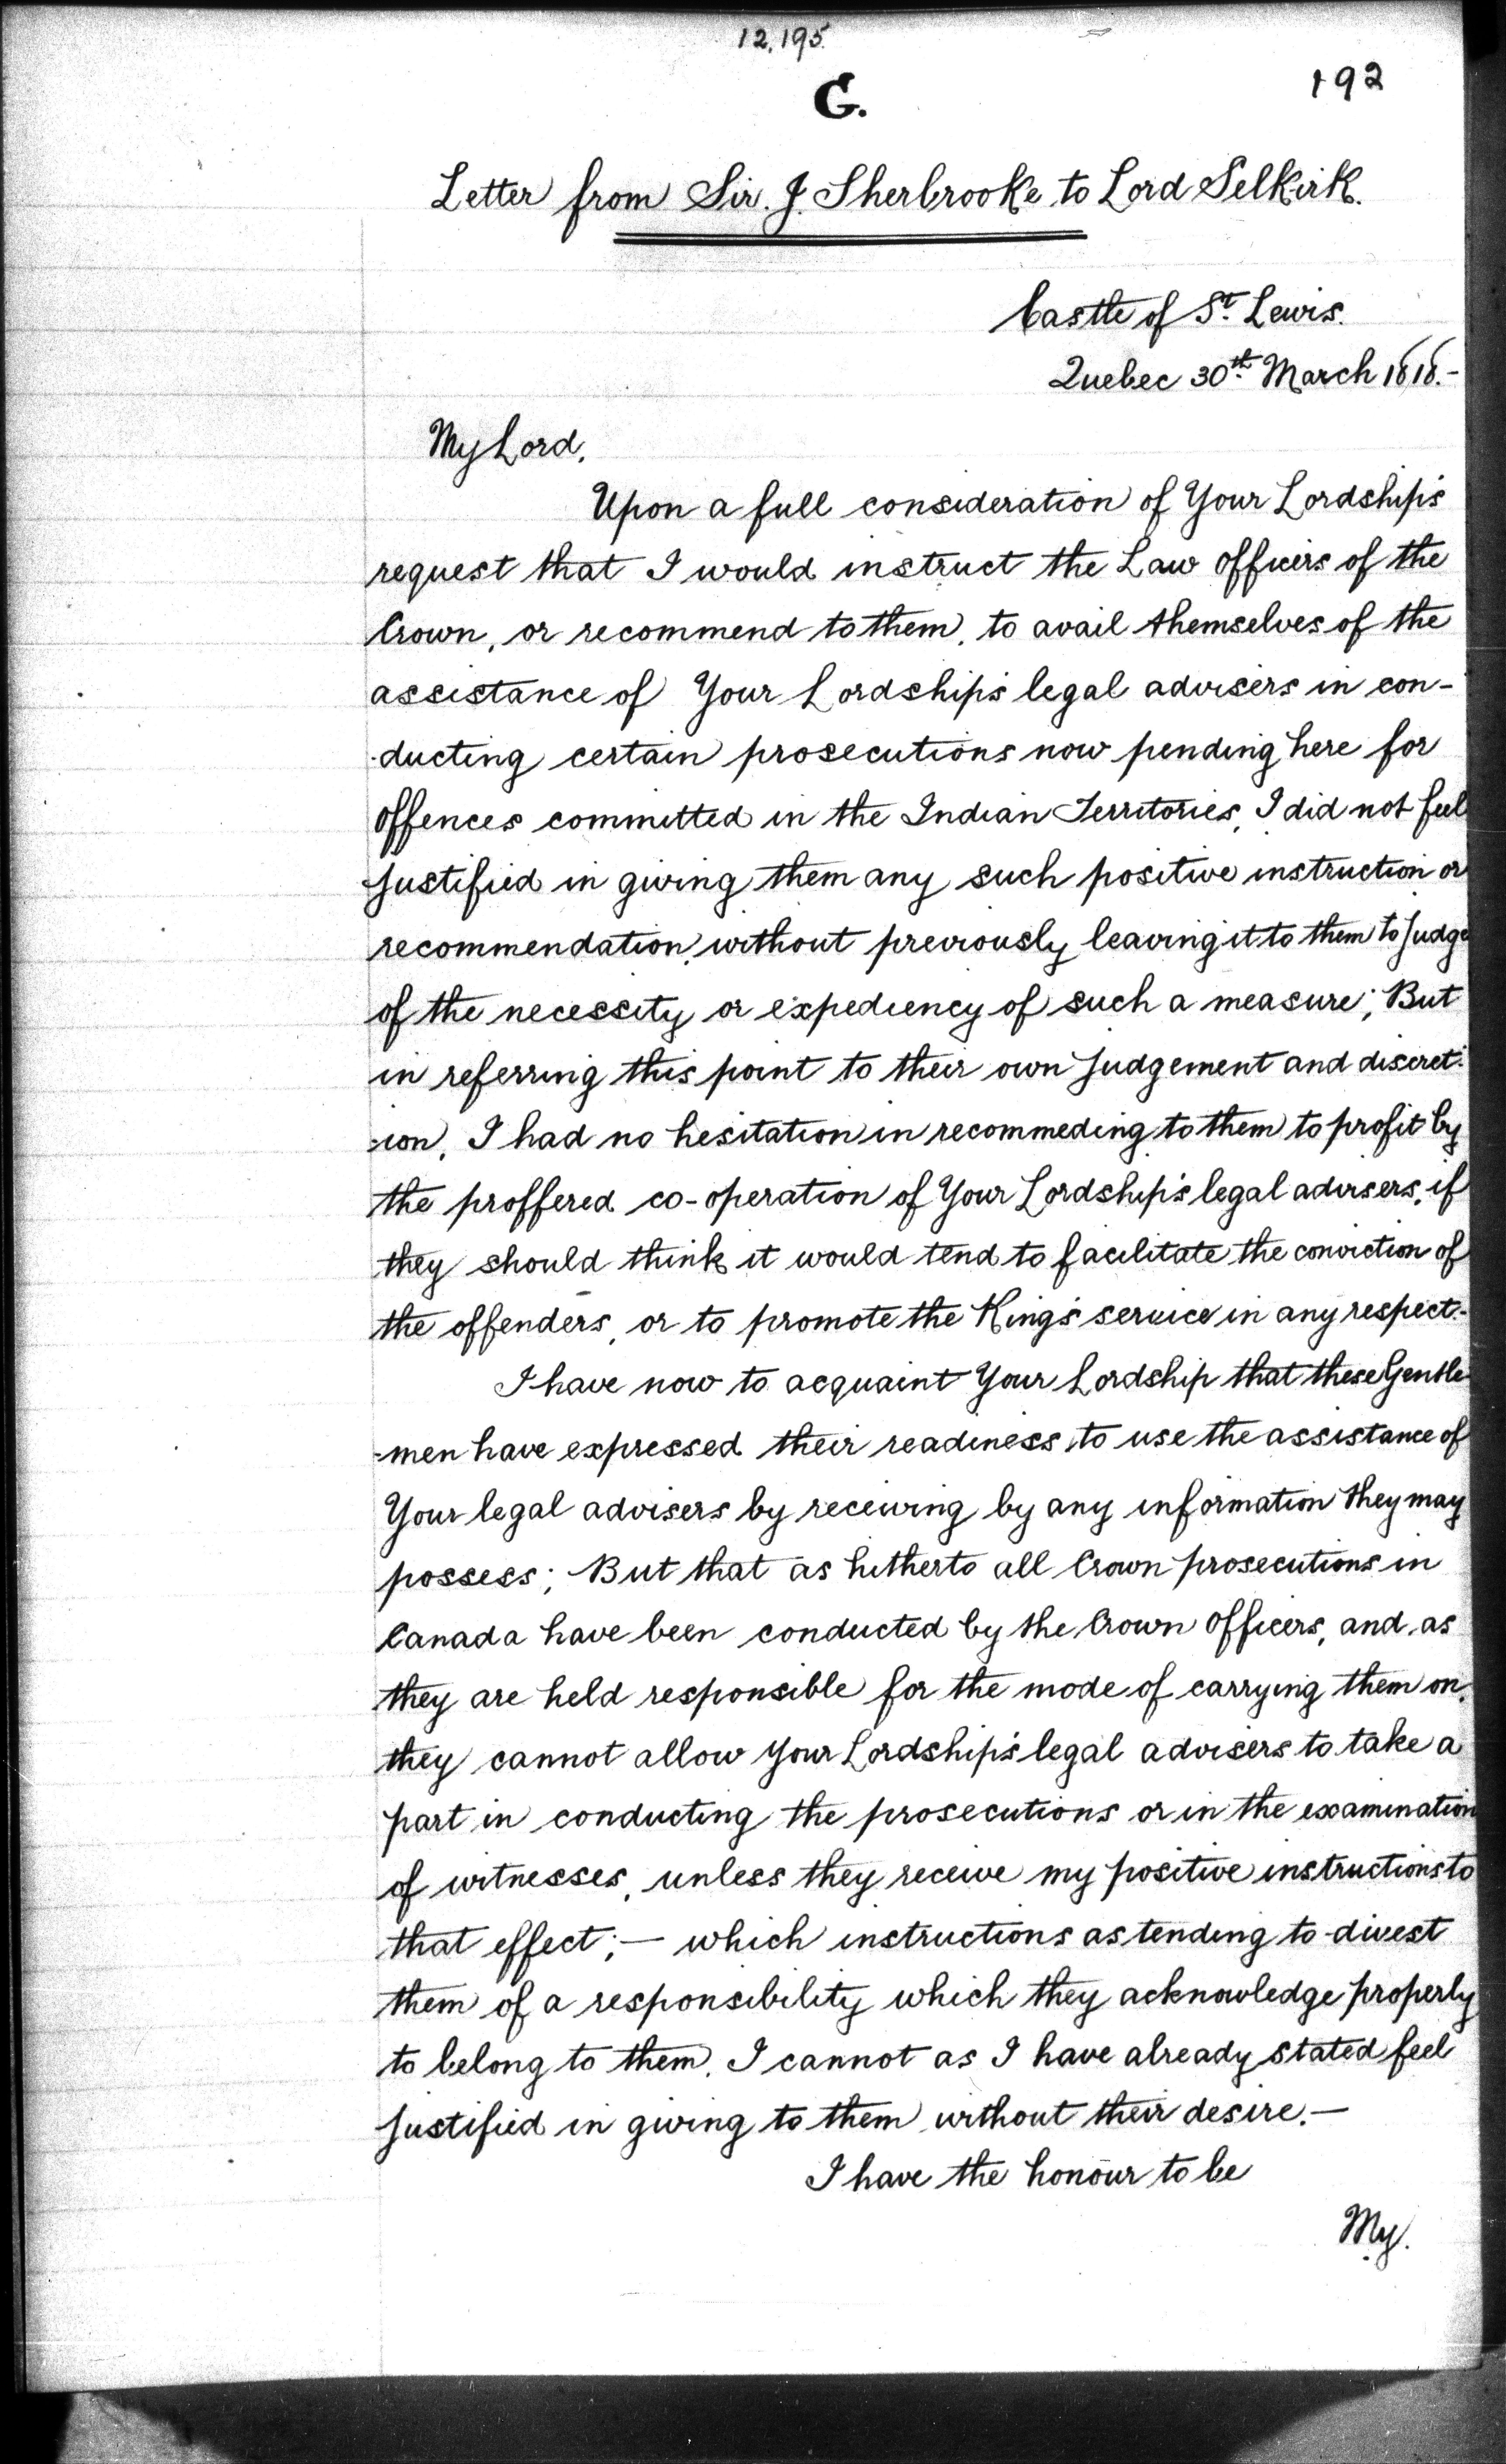 12,195
192
G.
Letter from Sir. J. Sherbrooke to Lord Selkirk.
Castle of St. Lewis.
Quebec 30th March 1818.-
My Lord,
Upon a full consideration of Your Lordship's
request that I would instruct the Law Officers of the
Crown, or recommend to them, to avail themselves of the
assistance of Your Lordship's legal advisers in con-
-ducting certain prosecutions now pending here for
Offences committed in the Indian Territories, I did not feel
Justified in giving them any such positive instruction or
recommendation, without previously leaving it to them to Judge
of the necessity or expediency of such a measure; But
in referring this point to their own Judgement and discret-
-ion, I had no hesitation in recommeding to them to profit by
the proffered co-operation of Your Lordship's legal advisers, if
they should think it would tend to facilitate the conviction of
the offenders, or to promote the King's service in any respect.-
I have now to acquaint Your Lordship that these Gentle-
-men have expressed their readiness, to use the assistance of
Your legal advisers by receiving by any information they may
possess; But that as hitherto all Crown prosecutions in
Canada have been conducted by the Crown Officers, and, as
they are held responsible for the mode of carrying them on,
they cannot allow Your Lordship's legal advisers to take a
part in conducting the prosecutions or in the examination
of witnesses, unless they receive my positive instructions to
that effect;— which instructions as tending to divest
them of a responsibility which they acknowledge properly
to belong to them, I cannot as I have already stated feel
Justified in giving to them without their desire.—
I have the honour to be
My.